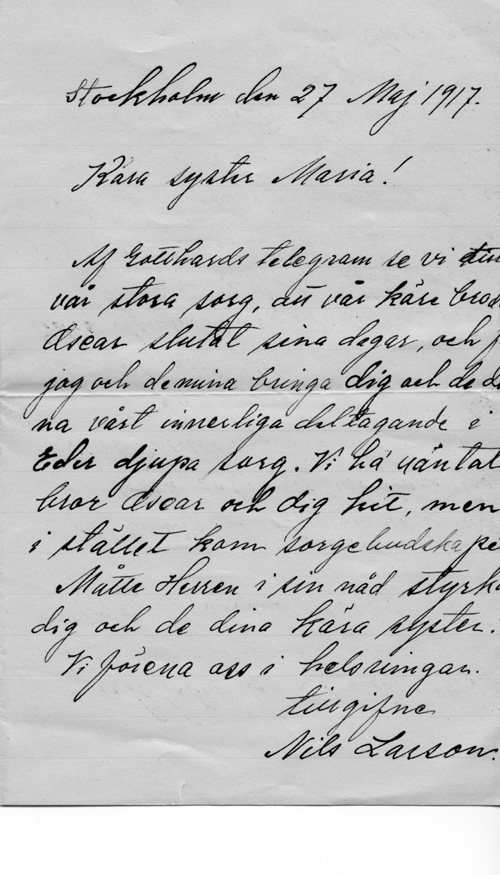 Stockholm den 27 Maj 1917.
Kära syster Maria!
Af Gotthards telegram se vi till
vår stora sorg, att vår käre bror
Oscar slutat sina dagar, och f
jag och de mina bringa dig och de di
na vårt innerliga deltagande i
Eder djupa sorg. Vi ha väntat
bror Oscar och dig hit, men
i stället kom sorgebudskape
Måtte Herren i sin nåd styrka
dig och de dina kära syster.
Vi förena oss i helsningar.
tillgifne
Nils Larson.